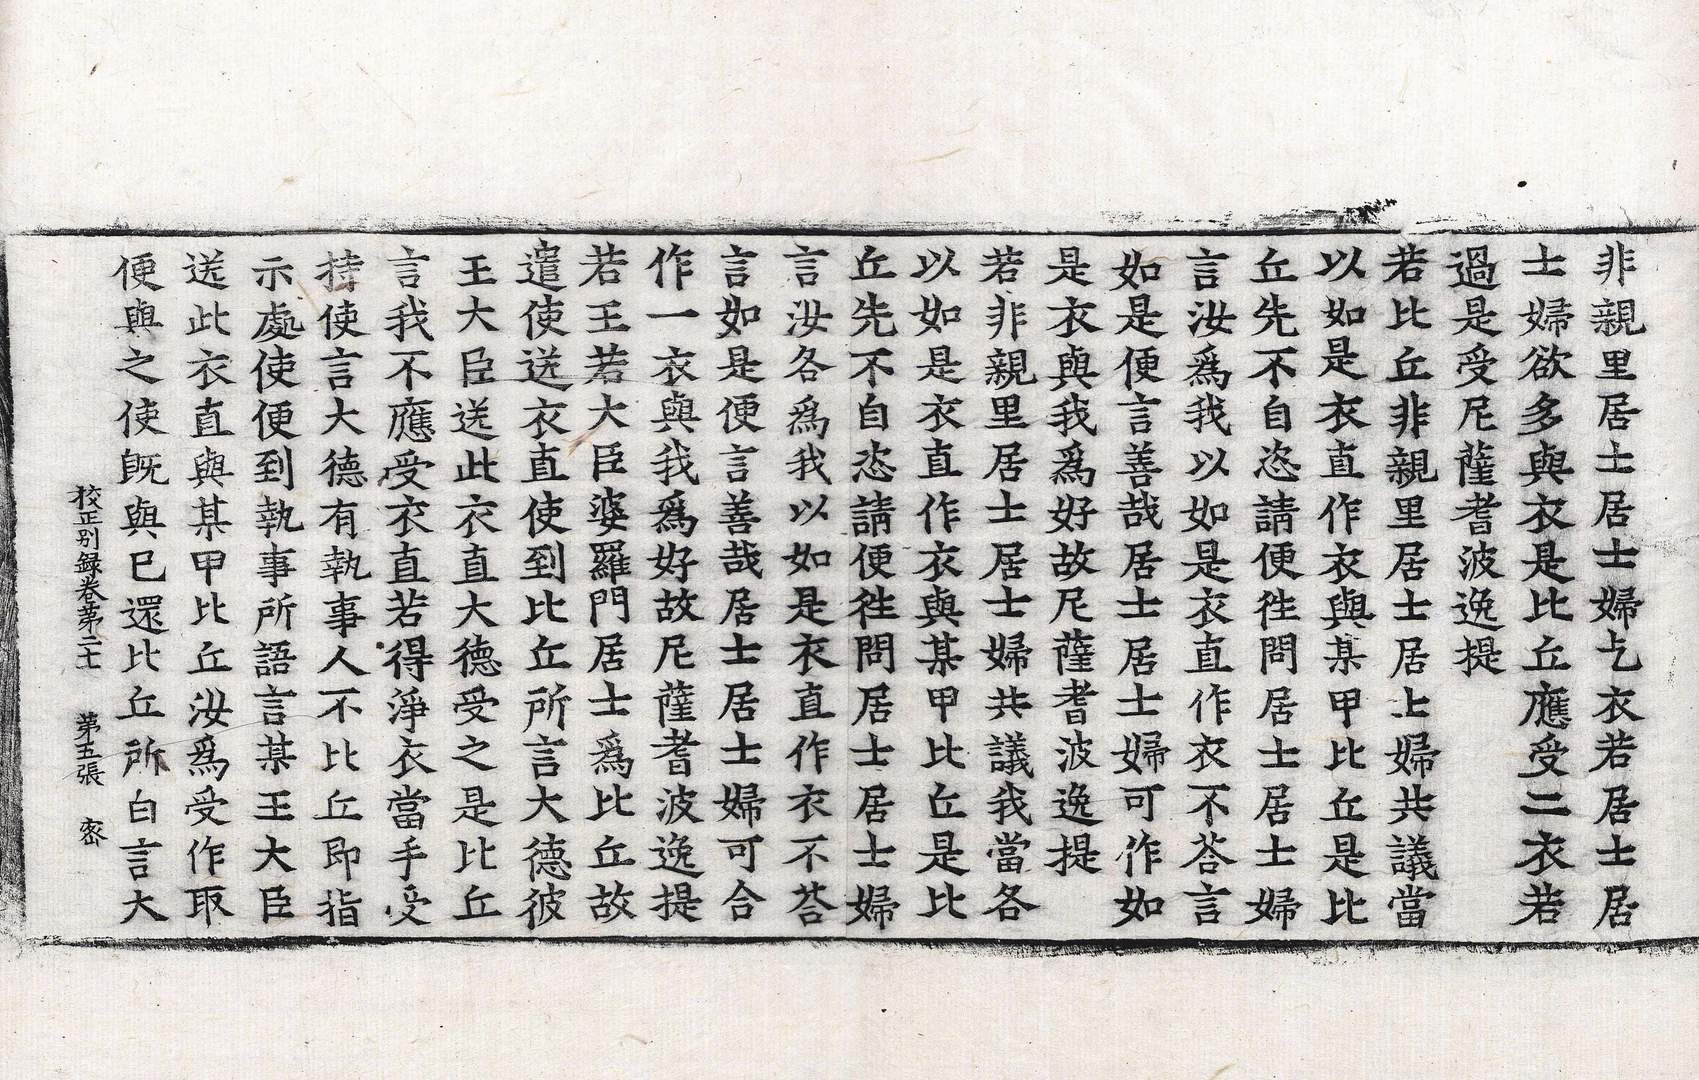 非親里居士居士婦乞衣若居士居
士婦欲多與衣是比丘應受二衣若
過是受尼薩耆波逸提
若比丘非親里居士居上婦共議當
以如是衣直作衣與某甲比丘是比
丘先不自恣請便徃問居士居士婦
言汝爲我以如是衣直作衣不荅言
如是便言善哉居士居士婦可作如
是衣與我爲好故尼薩耆波逸提
若非親里居士居士婦共議我當各
以如是衣直作衣與某甲比丘是比
丘先不自恣請便徃問居士居士婦
言汝各爲我以如是衣直作衣不荅
言如是便言善哉居士居士婦可合
作一衣與我爲好故尼薩耆波逸提
若王若大臣婆羅門居士爲比丘故
遣使送衣直使到比丘所言大德彼
王大臣送此衣直大德受之是比丘
言我不應受衣直若得淨衣當手受
持使言大德有執事人不比丘即指
示處使便到執事所語言某王大臣
送此衣直與某甲比丘汝爲受作取
便與之使旣與已還比丘所白言大
校正别録卷第二十 第五張 宻